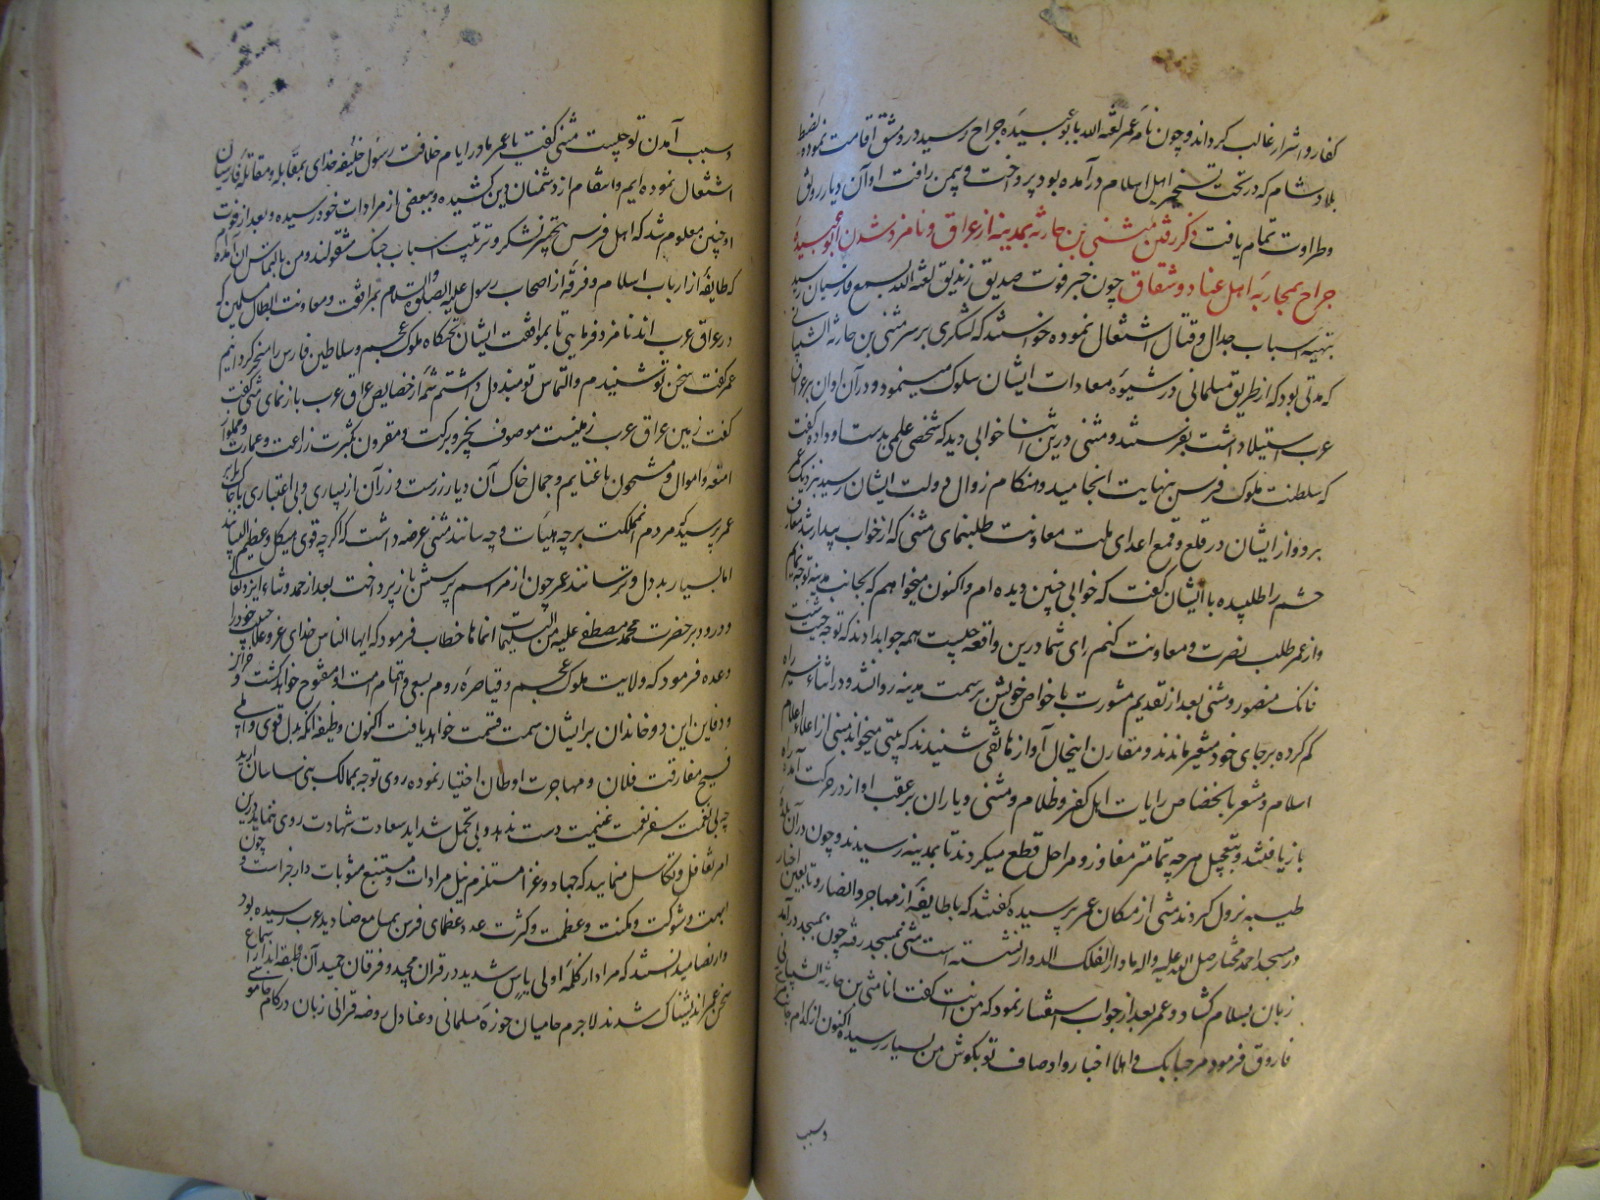 کفار و اشرار غالب کرداند و چون نامه عمر لعنه الله بابو عبیده جراح رسید در دمشق اقامت نموده بضبط
بلاد شام که در تحت تسخیر اهل اسلام درآمده بود پرداخت و بیمن رافت او آن دیار رونق
وطراوت تمام یافت ذکر رفتن مثنی بن حارثه بمدینه از عراق و نامزد شدن ابو عبیده
جراح بمحاربه اهل عناد و شقاق چون خبر فوت صدیق زندیق لعنه الله بسمع فارسیان رسید
بتهیه اسباب جدال و قتال اشتغال نموده خواستند که لشکری بر سر مثنی بن حارثه الشیبانی
که مدتی بود که از طریق مسلمانی در شیوه معادات ایشان سلوک مینمود و در آن اوان بر عراق
عرب استیلا داشت بفرستند و مثنی درین اثنا خوابی دید که شخصی علمی بدست او داده گفت
که سلطنت ملوک فرس بنهایت انجامید و هنکام زوال دولت ایشان رسید نزدیک عمر
برو و از ایشان در قلع و قمع اعدای ملت معاونت طلب نمای مثنی که از خواب بیدار شد معارف
حشم را طلبیده با ایشان گفت که خوابی چنین دیده ام و اکنون میخواهم که بجانب مدینه توجه نمایم
و از عمر طلب نصرت و معاونت کنم رای شما درین واقعه چیست همه جواب دادند که توجه حیث شئت
فانک منصور و مثنی بعد از تقدیم مشورت با خواص خویش بر سمت مدینه روانشد و در اثناء سیر راه
کم کرده بر جای خود متحیر ماندند و مقارن اینحال آواز هاتفی شنیدند که بیتی میخواند مبنی از اعلاء اعلام
اسلام و مشعر بانخفاض رایات اهل کفر و ظلام و مثنی و یاران بر عقب اواز در حرکت آمده راه
باز یافتند و بتعجیل هرچه تمامتر مفاوز و مراحل قطع میکردند تا بمدینه رسیدند و چون در آن بلده
طیبه نزول کردند مثنی از مکان عمر پرسیده گفتند که با طایفه از مهاجر و انصار و تابعین اخیار
در مسجد احمد مختار صلی الله علیه و اله مادار الفلک الدوار نشسته است مثنی بمسجد رفته چون بمسجد درآمد
زبان بسلام کشاد و عمر بعد از جواب استفسار نمود که من انت گفت انا مثنی بن حارثه الشیبانی
فاروق فرمود مرحبا بک و اهلا اخبار و اوصاف تو بکوش من بسیار رسیده اکنون از کدام جانب
و سبب
و سبب آمدن تو چیست مثنی گفت یا عمر ما در ایام خلافت رسول خلیفه خدای بمقابله و مقاتله فارسیان
اشتغال نموده ایم و انتقام از دشمنان دین کشیده و ببعضی از مرادات خود رسیده و بعد از فوت
او چنین معلوم شد که اهل فرس بتجهیز لشکر و ترتیب اسباب جنک مشغولند و من بالتماس آن آمده ام
که طایفه از ارباب اسلام و فرقه از اصحاب رسول علیه الصلوة والسلام بمرافقت و معاونت ابطال مسلمین که
در عراق عرب اند نامزد فرمایی تا بموافقت ایشان تختکاه ملوک عجم و سلاطین فارس را مسخر کردانیم
عمر گفت سخن تو شنیدم و التماس تو مبذول داشتم شمه از خصایص عراق عرب باز نمای مثنی گفت
گفت زمین عراق عرب زمینیست موصوف بخیر و برکت و مقرون بکثرت زراعت و عمارت و مملو از
امتعه و اموال و مشحون با غنایم و جمال خاک آن دیار زرست و زر آن از بسیاری و بی اعتباری با خاک برابر
عمر پرسید که مردم انمملکت بر چه هیات و چه سانند مثنی عرضه داشت که اکر چه قوی هیکل و عظیم البنیه اند
اما بسیار بد دل و ترسانند عمر چون از مراسم پرسش باز پرداخت بعد از حمد و ثناء ایزد تعالی
و درود بر حضرت محمد مصطفی علیه من التسلیمات انماها خطاب فرمود که ایها الناس خدای عز و علا حبیب خود را
وعده فرمود که ولایت ملوک عجم و قیاصره روم بسعی و اهتمام امت او مفتوح خواهد کشت و خزاین
و دفاین این دو خاندان بر ایشان سمت قسمت خواهد یافت اکنون وظیفه انکه بدل قوی و املی
فسیح مفارقت فلان و مهاجرت اوطان اختیار نموده روی توجه بممالک بنی ساسان آرید
چه بی نقمت سفر نعمت غنیمت دست ندهد و بی تحمل شداید سعادت شهادت روی ننماید درین
امر تغافل و تکاسل منمایید که جهاد و غزا مستلزم نیل مرادات و مستتبع مثوبات دار جزاست و چون
ابهت و شوکت و مکنت و عظمت و کثرت عدد عظمای فرس بمسامع صنادید عرب رسیده بود
و ارتضا میدانستند که مراد از کلمه اولی باس شدید در قران مجید و فرقان حمید آن طبقه اند از استماع
سخن عمر اندیشناک شدند لاجرم حامیان حوزه مسلمانی و عنادل روضه قرانی زبان در کام خاموشی